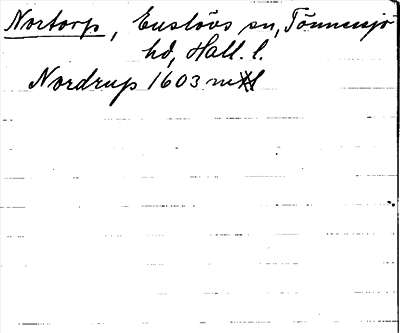 Nortorp, Enslövs sn, Tönnersjö
hd, Hall. l.
Nordrup 1603